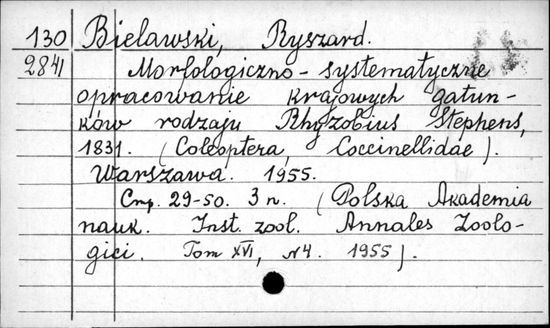 130 Bielawski, Ryszard.
2841 Morfologiczno-systematyczne
opracowanie krajowych gatun-
ków rodzaju Rhyzobius Stephens,
1831. (Coleoptera, Coccinellidae).
Warszawa. 1955.
Стр. 29-50. 3 п. (Polska Akademia
nauk. Inst. zool. Annales Zoolo-
gici. Tom XVI, N4. 1955).